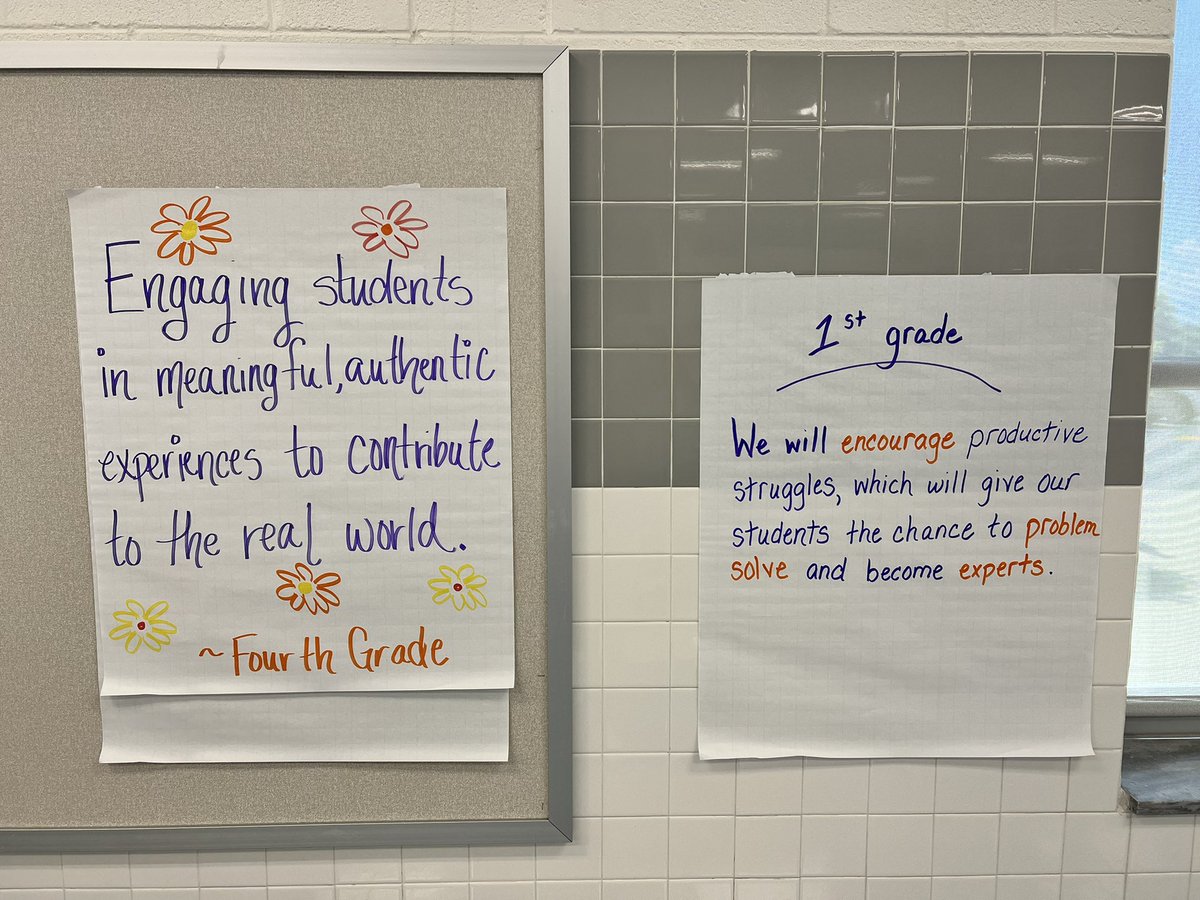 Engaging students
in meaningful, authentic
experiences to contribute
to the real world.
~Fourth Grade
1st grade
We will encourage productive
struggles, which will give our
students the chance to problem
solve and become experts.